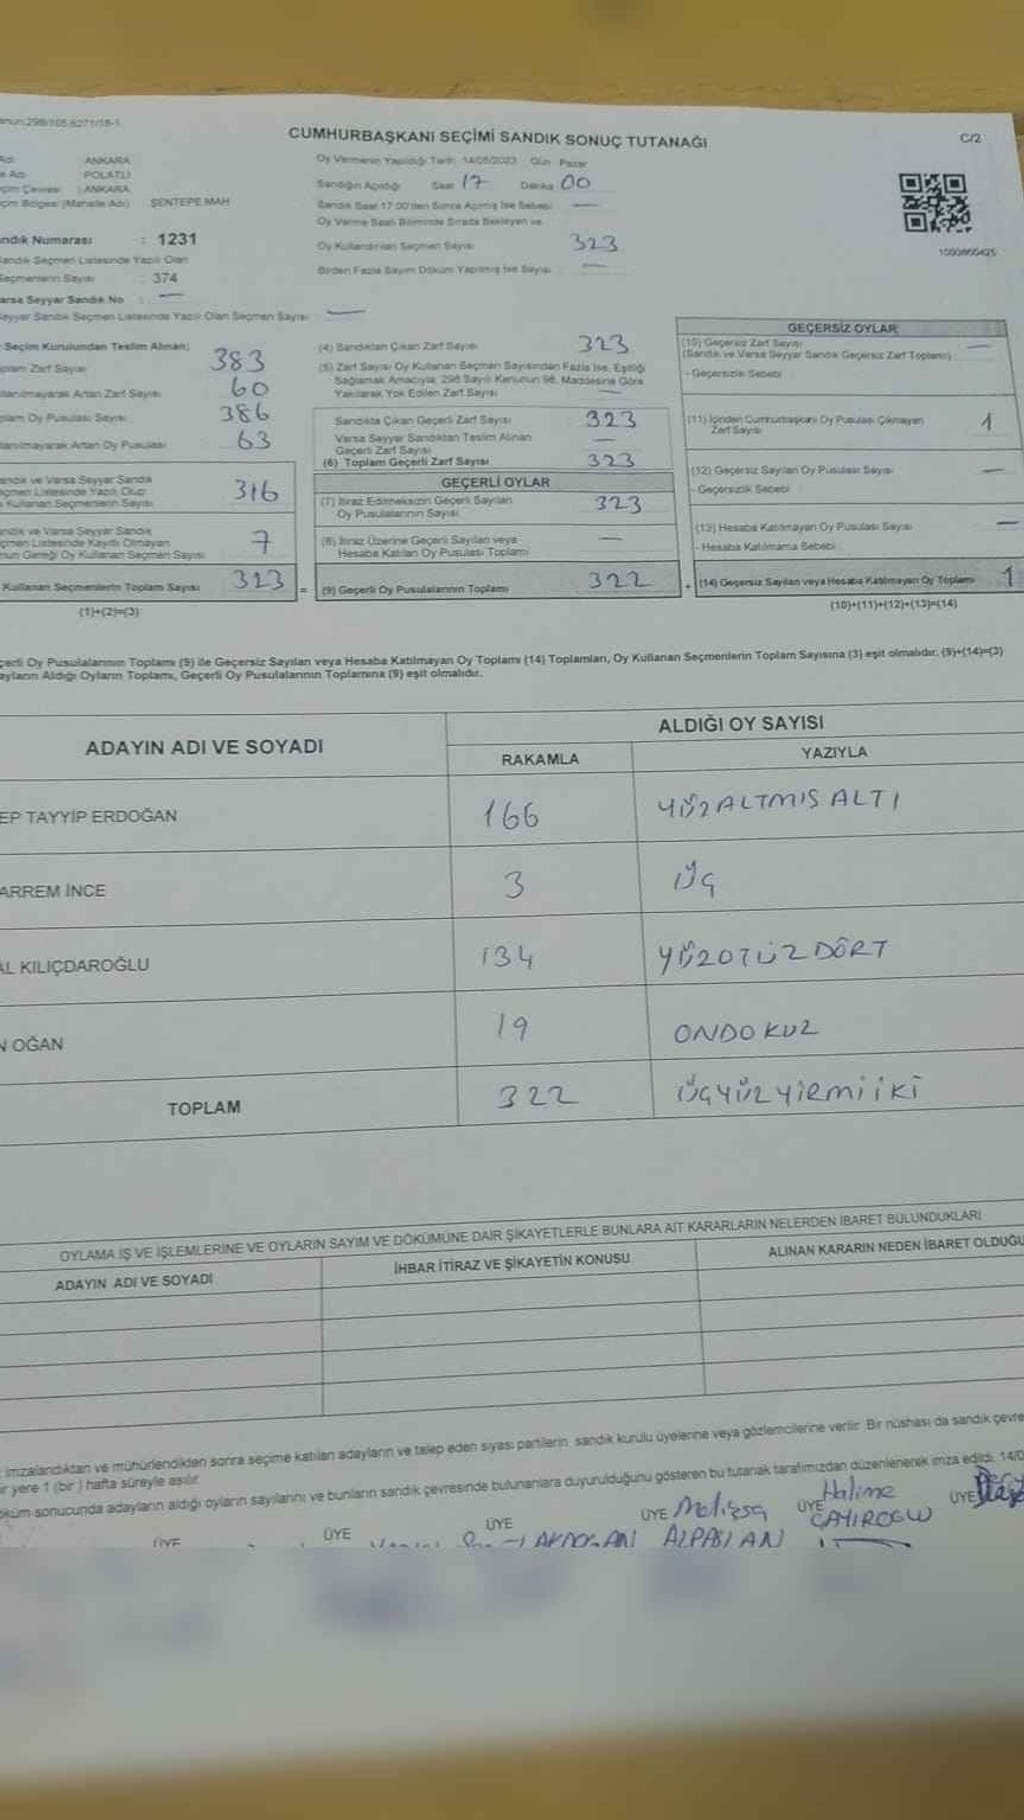 CUMHURBAŞKANI SEÇİMİ SANDIK SONUÇ TUTANAĞI
C/2
ANKARA
POLATLI
ANKARA
ŞENTEPE MAH
Oy Vermenin Yapıldığı Tarih: 14/05/2023 Gün Pazar
Sandığın Açıldığı Saat 17 Dakika 00
Sandık Saat 17:00'den Sonra Açılmış İse Sebebi —
Oy Verme Saati Bitiminde Sırada Bekleyen ve
Oy Kullandırılan Seçmen Sayısı 323
Birden Fazla Sayım Döküm Yapılmış İse Sayısı —
1231
Sandık Seçmen Listesinde Yazılı Olan
Seçmenlerin Sayısı : 374
Varsa Seyyar Sandık No : —
Seyyar Sandık Seçmen Listesinde Yazılı Olan Seçmen Sayısı —
Seçim Kurulundan Teslim Alınan;
Zarf Sayısı 383
Artan Zarf Sayısı 60
Oy Pusulası Sayısı 386
Artan Oy Pusulası 63
ve Varsa Seyyar Sandık
Listesinde Yazılı Olup
Kullanan Seçmenlerin Sayısı 316
ve Varsa Seyyar Sandık
Listesinde Kayıtlı Olmayan
Gereği Oy Kullanan Seçmen Sayısı 7
Kullanan Seçmenlerin Toplam Sayısı 323
=
(1)+(2)=(3)
(4) Sandıktan Çıkan Zarf Sayısı 323
(5) Zarf Sayısı Oy Kullanan Seçmen Sayısından Fazla İse, Eşitliği
Sağlamak Amacıyla, 298 Sayılı Kanunun 98. Maddesine Göre
Yakılarak Yok Edilen Zarf Sayısı —
Sandıkta Çıkan Geçerli Zarf Sayısı 323
Varsa Seyyar Sandıktan Teslim Alınan
Geçerli Zarf Sayısı —
(6) Toplam Geçerli Zarf Sayısı 323
GEÇERLİ OYLAR
(7) İtiraz Edilmeksizin Geçerli Sayılan
Oy Pusulalarının Sayısı 323
(8) İtiraz Üzerine Geçerli Sayılan veya
Hesaba Katılan Oy Pusulası Toplamı —
(9) Geçerli Oy Pusulalarının Toplamı 322
+
GEÇERSİZ OYLAR
(10) Geçersiz Zarf Sayısı —
(Sandık ve Varsa Seyyar Sandık Geçersiz Zarf Toplamı)
- Geçersizlik Sebebi
(11) İçinden Cumhurbaşkanı Oy Pusulası Çıkmayan
Zarf Sayısı 1
(12) Geçersiz Sayılan Oy Pusulası Sayısı —
- Geçersizlik Sebebi
(13) Hesaba Katılmayan Oy Pusulası Sayısı —
- Hesaba Katılmama Sebebi
(14) Geçersiz Sayılan veya Hesaba Katılmayan Oy Toplamı 1
(10)+(11)+(12)+(13)=(14)
Oy Pusulalarının Toplamı (9) ile Geçersiz Sayılan veya Hesaba Katılmayan Oy Toplamı (14) Toplamları, Oy Kullanan Seçmenlerin Toplam Sayısına (3) eşit olmalıdır. (9)+(14)=(3)
Aldığı Oyların Toplamı, Geçerli Oy Pusulalarının Toplamına (9) eşit olmalıdır.
ADAYIN ADI VE SOYADI
ALDIĞI OY SAYISI
RAKAMLA
YAZIYLA
EP TAYYİP ERDOĞAN 166 YÜZALTMIŞ ALTI
ARREM İNCE 3 ÜÇ
AL KILIÇDAROĞLU 134 YÜZOTUZ DÖRT
N OĞAN 19 ONDOKUZ
TOPLAM 322 ÜÇYÜZYİRMİİKİ
OYLAMA İŞ VE İŞLEMLERİNE VE OYLARIN SAYIM VE DÖKÜMÜNE DAİR ŞİKAYETLERLE BUNLARA AİT KARARLARIN NELERDEN İBARET BULUNDUKLARI
ADAYIN ADI VE SOYADI
İHBAR İTİRAZ VE ŞİKAYETİN KONUSU
ALINAN KARARIN NEDEN İBARET OLDUĞU
imzalandıktan ve mühürlendikten sonra seçime katılan adayların ve talep eden siyasi partilerin sandık kurulu üyelerine veya gözlemcilerine verilir. Bir nüshası da sandık çevre
yere 1 (bir) hafta süreyle asılır.
sonucunda adayların aldığı oyların sayılarını ve bunların sandık çevresinde bulunanlara duyurulduğunu gösteren bu tutanak tarafımızdan düzenlenerek imza edildi. 14/0
ÜYE
ÜYE
ÜYE
ÜYE Melissa
ALPASLAN
ÜYE Halime
ÇAYIROĞLU
ÜYE